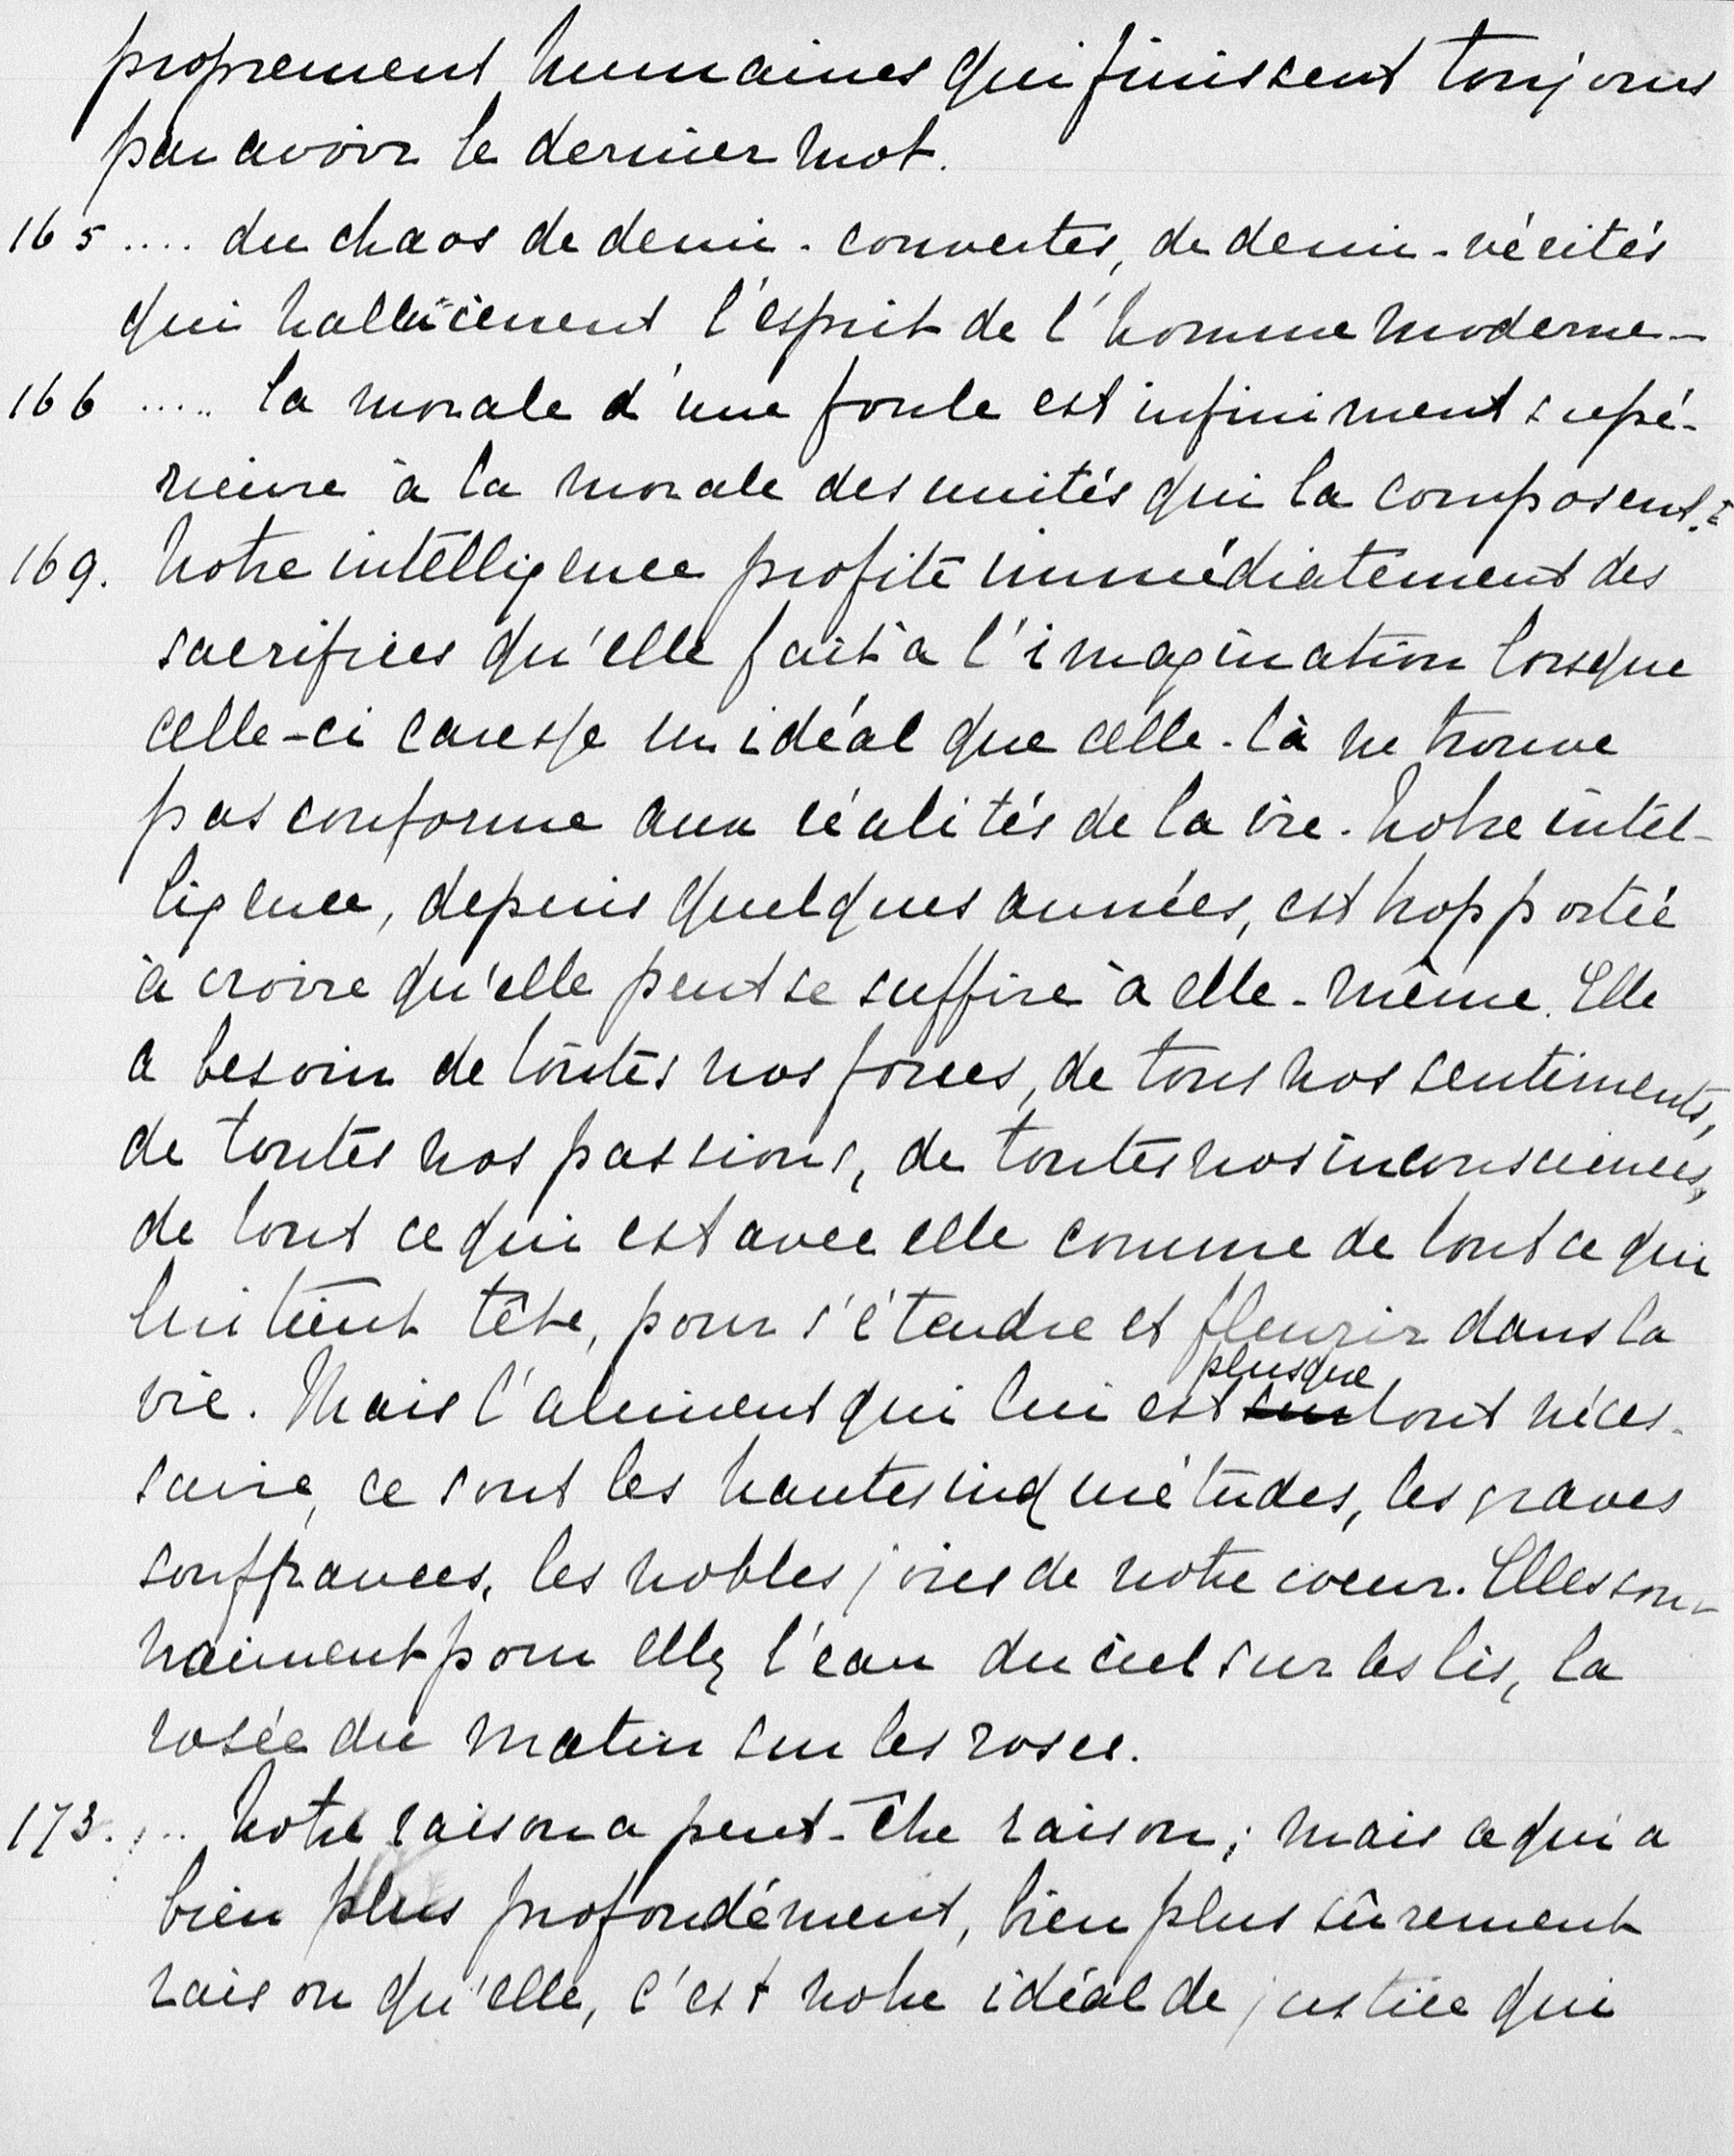 proprement humaines qui finissent toujours
par avoir le dernier mot.
165 .... du chaos de demi-convertes, de demi-vérités
qui hallucinent l'esprit de l'homme moderne -
166 ..... la morale d'une foule est infiniment supé-
rieure à la morale des unités qui la composent.
169. Notre intelligence profite immédiatement des
sacrifices qu'elle fait à l'imagination lorsque
celle-ci caresse un idéal que celle-là ne trouve
pas conforme aux réalités de la vie. Notre intel-
ligence, depuis quelques années, est trop portée
à croire qu'elle peut se suffire à elle-même. Elle
a besoin de toutes nos forces, de tous nos sentiments,
de toutes nos passions, de toutes nos inconsciences,
de tout ce qui est avec elle comme de tout ce qui
lui tient tête, pour s'étendre et fleurir dans la
plus que
vie. Mais l'aliment qui lui est sur tout néces-
saire, ce sont les hautes inquiétudes, les graves
souffrances, les nobles joies de notre coeur. Elles son-
vraiment pour elle, l'eau du ciel sur les lis, la
rosée du matin sur les roses.
173. ... Notre raison a peut-être raison; mais ce qui a
bien plus profondément, bien plus sûrement
raison qu'elle, c'est notre idéal de justice qui